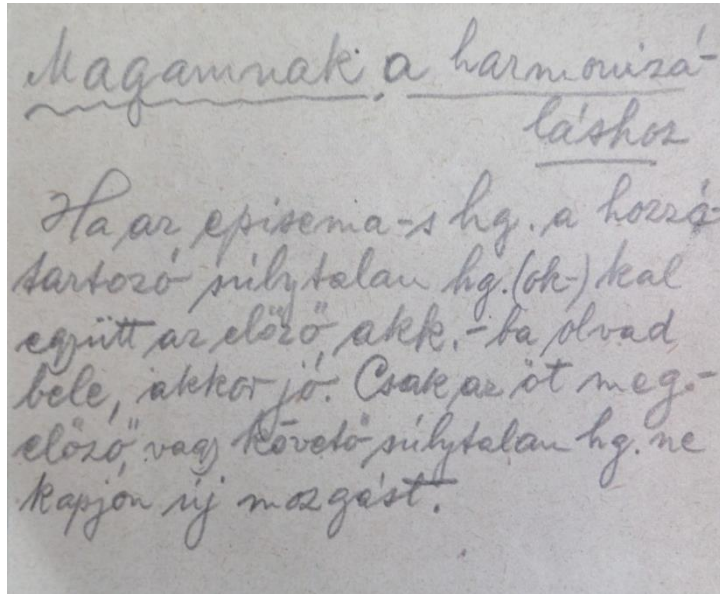 Magamnak a harmonizá-
láshoz
Ha az episema-s hg. a hozzá-
tartozó súlytalan hg.(ok-)kal
együtt az előző akk.-ba olvad
bele, akkor jó. Csak az őt meg-
előző vagy követő súlytalan hg. ne
kapjon új mozgást.